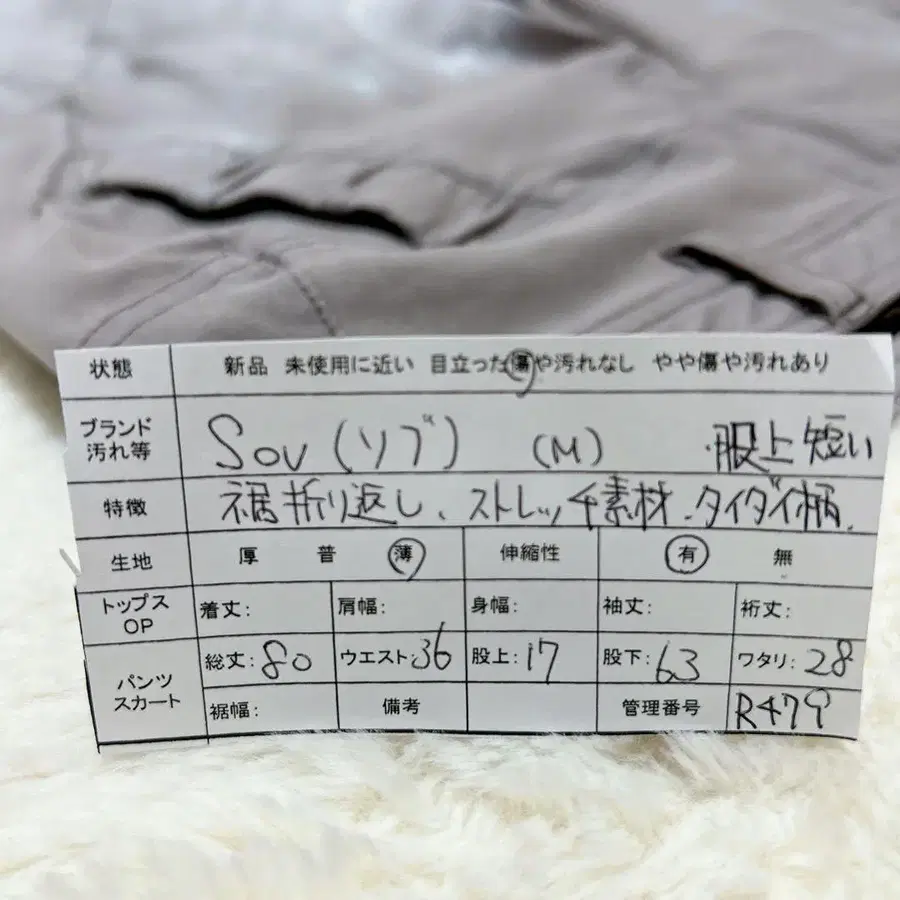 状態 新品 未使用に近い 目立った傷や汚れなし やや傷や汚れあり
ブランド 汚れ等 Sov(ソブ) (M) ・股上短い
特徴 裾折り返し、ストレッチ素材、タイダイ柄、
生地 厚 普 薄 伸縮性 有 無
トップス OP 着丈: 肩幅: 身幅: 袖丈: 裄丈:
パンツ スカート 総丈:80 ウエスト:36 股上:17 股下:63 ワタリ:28
裾幅: 備考 管理番号 R479